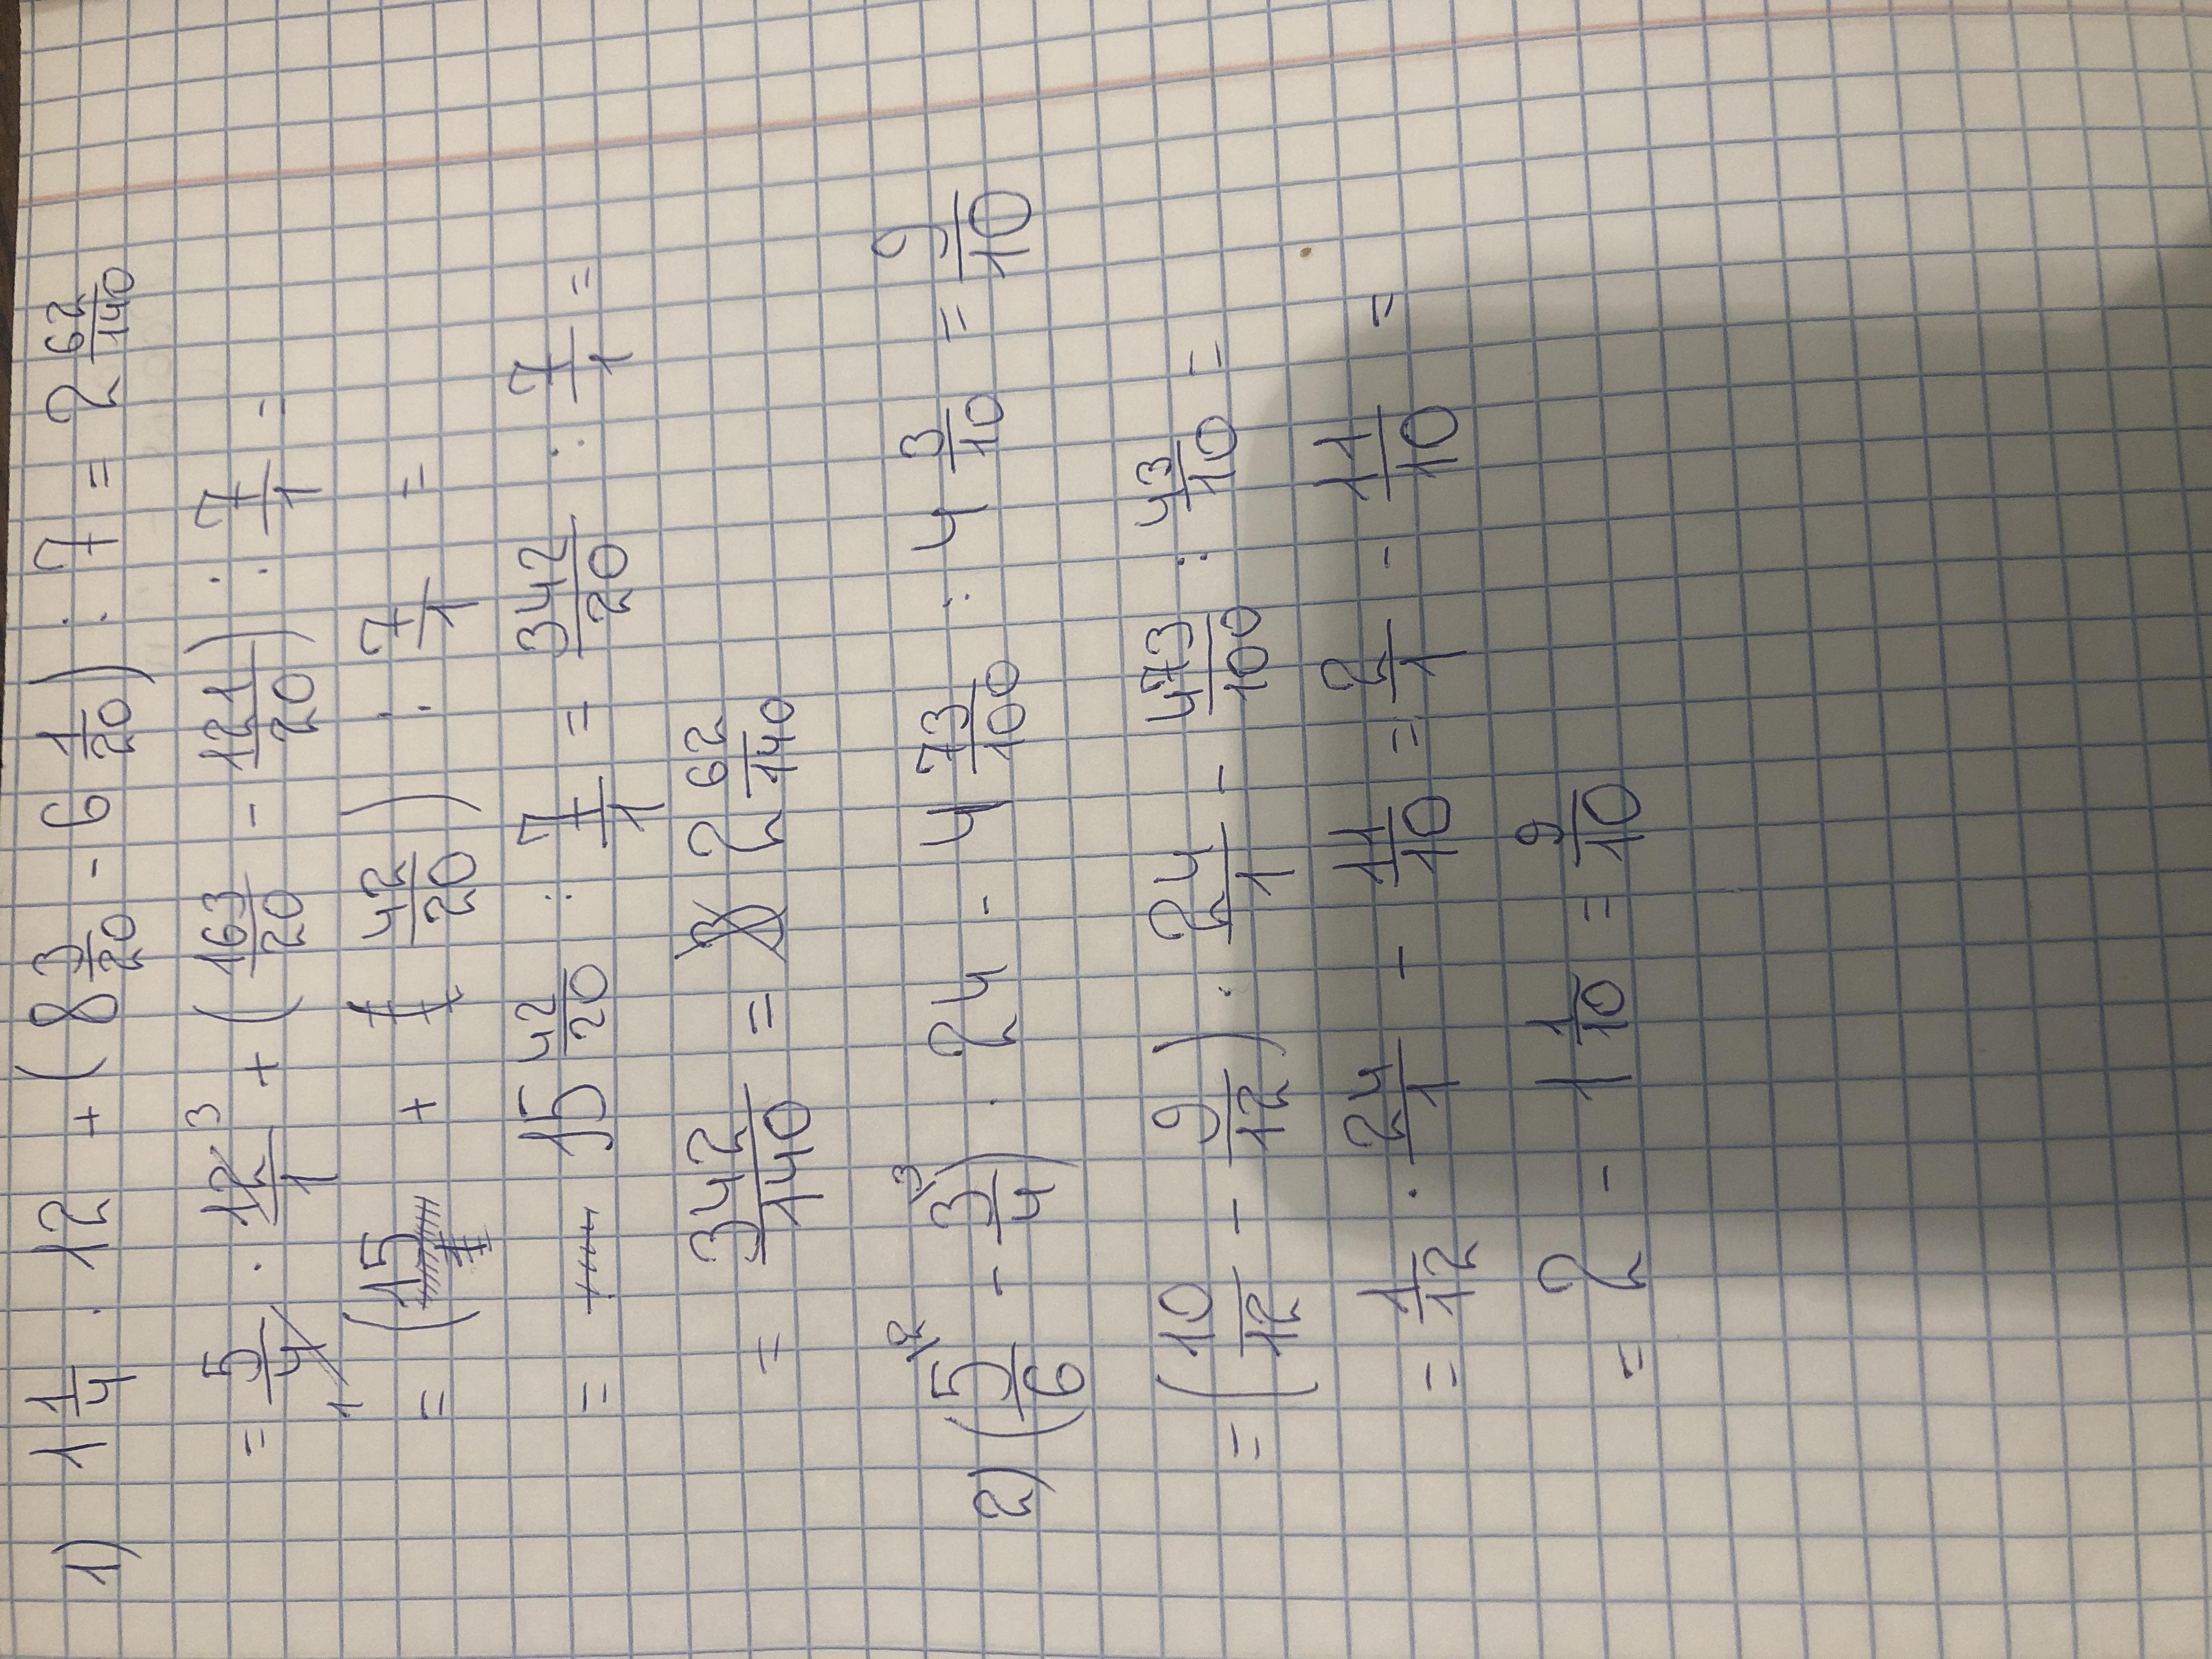 1) 1 1/4 · 12 + (8 3/20 - 6 1/20) : 7 = 2 62/140
= 5/4 · 12/1 + (163/20 - 121/20) : 7/1 -
1 3
= (15 + (42/20) : 7/1 =
= 15 42/20 : 7/1 = 342/20 : 7/1 =
= 342/140 = 2 62/140
2) (5/6 - 3/4) · 24 - 4 73/100 : 4 3/10 = 9/10
= (10/12 - 9/12) · 24/1 - 473/100 : 43/10 =
= 1/12 · 24/1 - 11/10 = 2/1 - 11/10 =
= 2 - 1 1/10 = 9/10